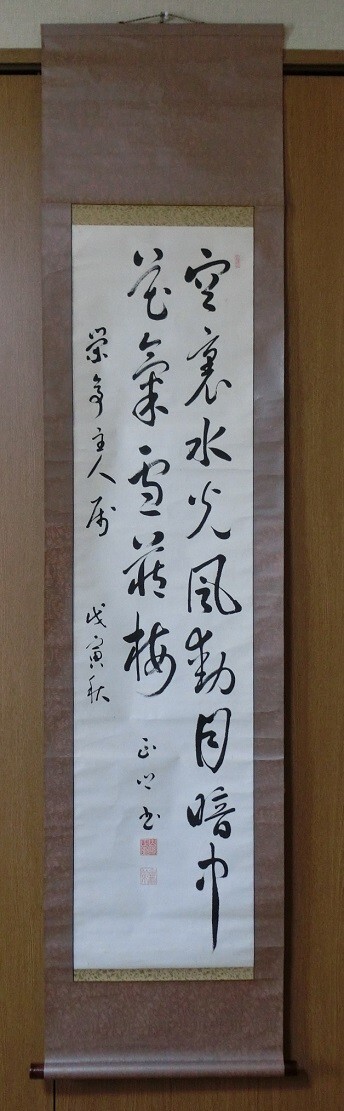 空裏水光風動月暗中
花氣雪藏梅
正堂書
榮亭主人属 戊寅秋